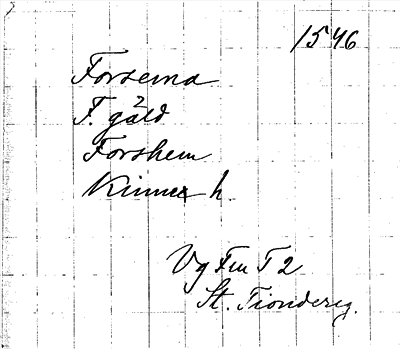 1546
Forsema
F. gäld
Forshem
Kinne h.
Vg Fru T 2
St. Tiondereg.